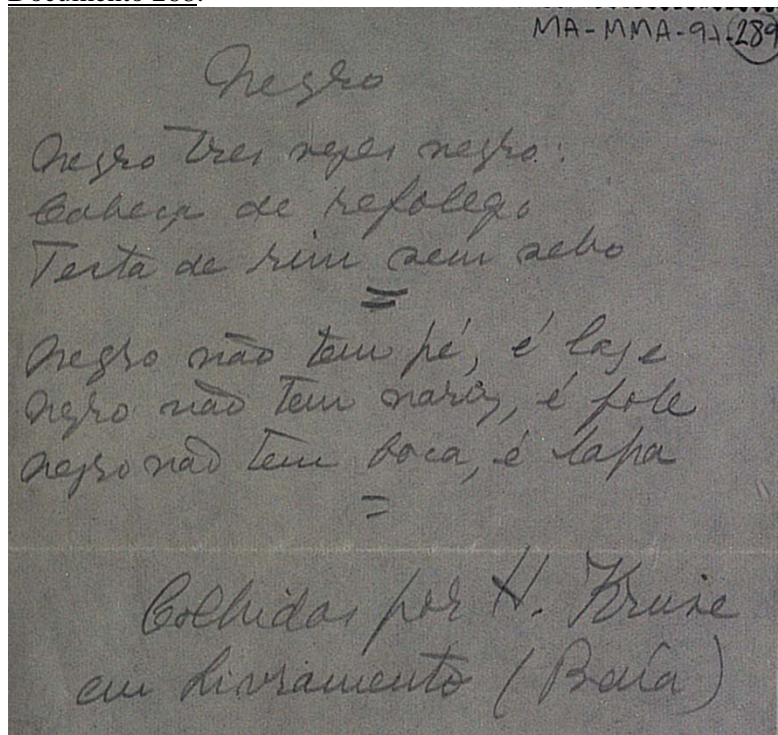 Documento 288:
MA-MMA-91-289
Negro
Negro tres vezes negro:
Cabeça de refolego
Testa de rim sem sebo
=
Negro não tem pé, é laje
Negro não tem nariz, é fole
Negro não tem boca, é lapa
=
Colhidas por H. Kruse
em Livramento (Baía)